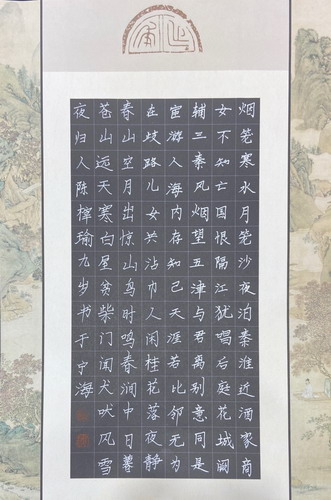 烟笼寒水月笼沙夜泊秦淮近酒家商
女不知亡国恨隔江犹唱后庭花城阙
辅三秦风烟望五津与君离别意同是
宦游人海内存知己天涯若比邻无为
在歧路儿女共沾巾人闲桂花落夜静
春山空月出惊山鸟时鸣春涧中日暮
苍山远天寒白屋贫柴门闻犬吠风雪
夜归人陈樟瑜九岁书于宁海